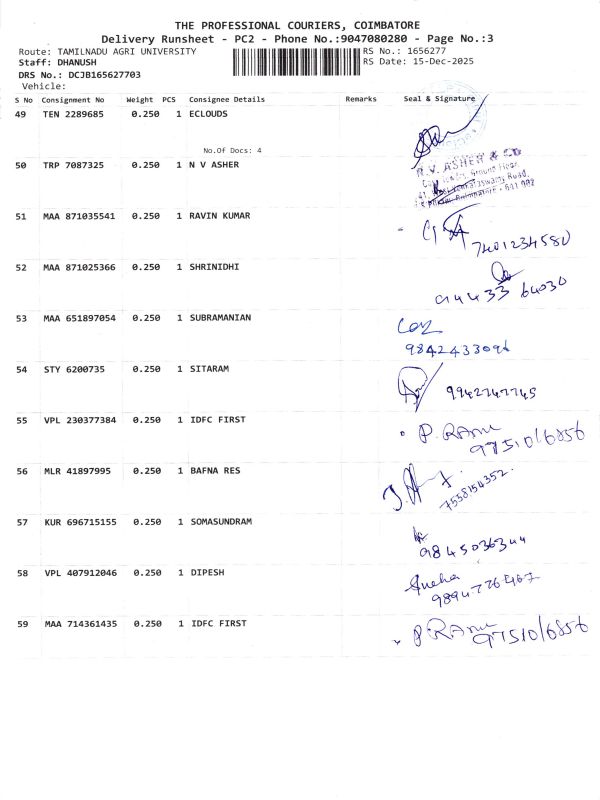 THE PROFESSIONAL COURIERS, COIMBATORE
Delivery Runsheet - PC2 - Phone No.:9047080280 - Page No.:3
Route: TAMILNADU AGRI UNIVERSITY RS No.: 1656277
Staff: DHANUSH RS Date: 15-Dec-2025
DRS No.: DCJB165627703
Vehicle:
S No Consignment No Weight PCS Consignee Details Remarks Seal & Signature
49 TEN 2289685 0.250 1 ECLOUDS
No.Of Docs: 4
50 TRP 7087325 0.250 1 N V ASHER
R.V. ASHER & CO
Ground Floor,
51 MAA 871035541 0.250 1 RAVIN KUMAR
7401234580
52 MAA 871025366 0.250 1 SHRINIDHI
94433 64030
53 MAA 651897054 0.250 1 SUBRAMANIAN
984243309
54 STY 6200735 0.250 1 SITARAM
9942747745
55 VPL 230377384 0.250 1 IDFC FIRST
P. RAmu
9751016856
56 MLR 41897995 0.250 1 BAFNA RES
7558154352.
57 KUR 696715155 0.250 1 SOMASUNDRAM
9845036344
58 VPL 407912046 0.250 1 DIPESH
Sneha
9894776467
59 MAA 714361435 0.250 1 IDFC FIRST
P.RAmu
9751016856